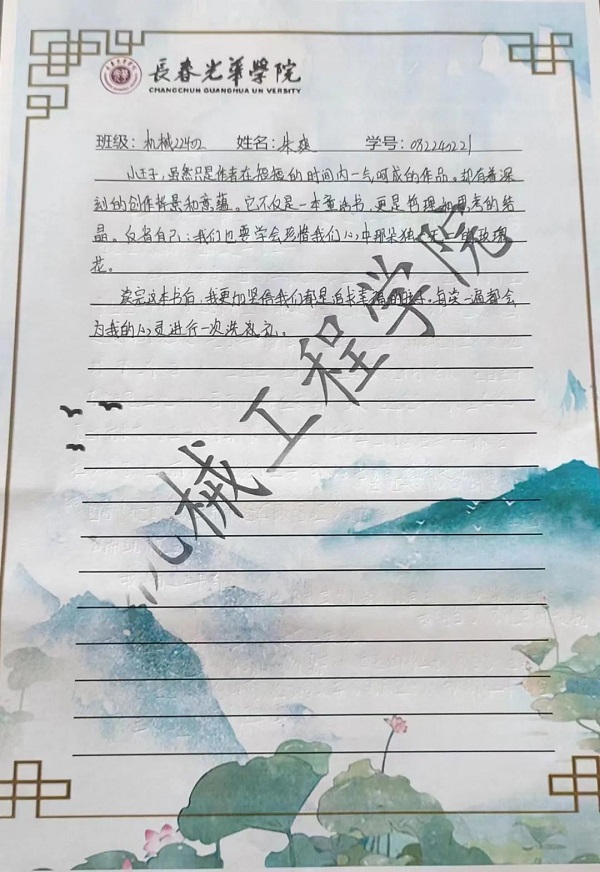 長春光華學院
CHANGCHUN GUANGHUA UN VERSITY
班级：机械22402 姓名：朱 学号：032240221
小王子，虽然只是作者在短短的时间内一气呵成的作品。却有着深
刻的创作背景和意蕴。它不仅是一本童话书，更是哲理和思考的结
晶。反省自己：我们也要学会珍惜我们心中那朵独一无二的玫瑰
花。
读完这本书后，我更加坚信我们都是追求幸福的孩子。每读一遍都会
为我的心灵进行一次洗礼。
机械工程学院